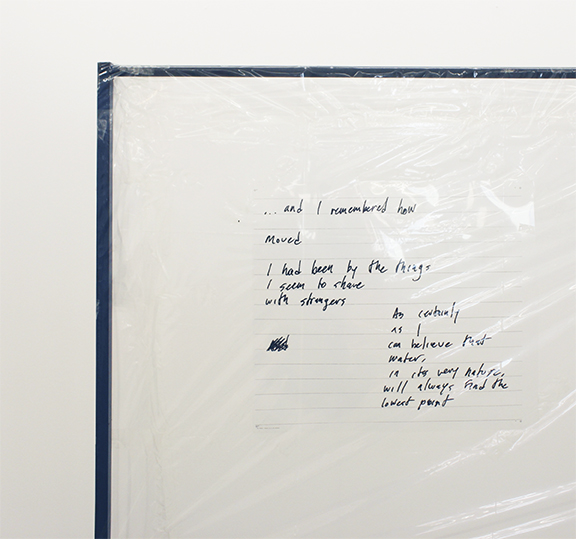 ... and I remembered how
moved
I had been by the things
I seem to share
with strangers
As certainly
as I
can believe that
water,
in its very nature,
will always find the
lowest point